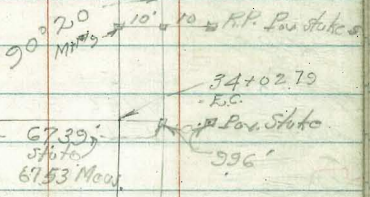 90° 20'
10' 10 R.P. Pav. Stakes
34+02.79
E.C.
Pav. Stake
67.39
State
67.53 Meas.
9.96'